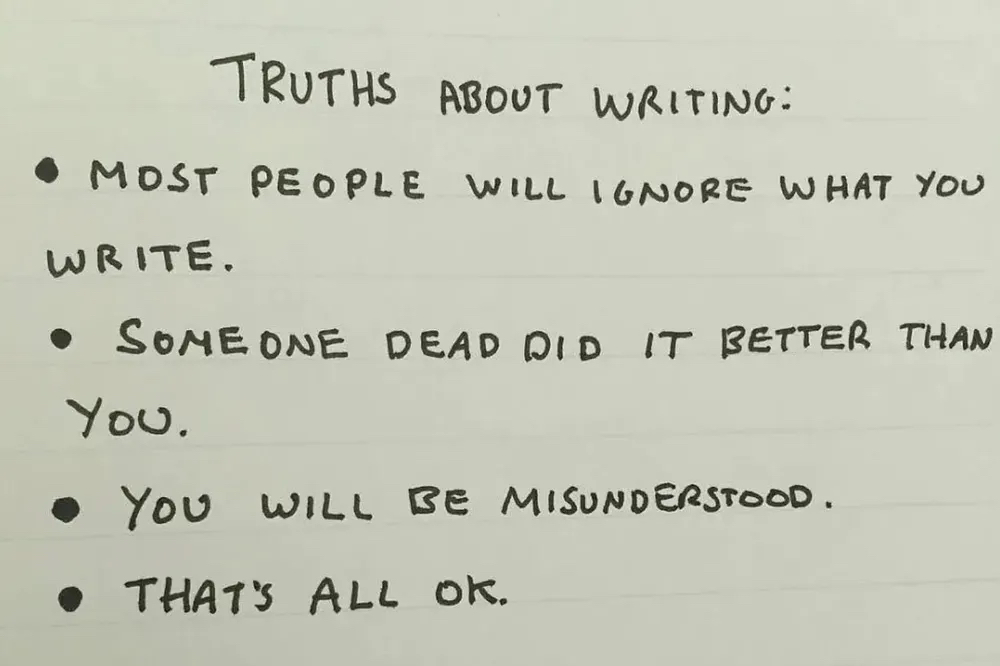 TRUTHS ABOUT WRITING:
• MOST PEOPLE WILL IGNORE WHAT YOU
WRITE.
• SOMEONE DEAD DID IT BETTER THAN
YOU.
• YOU WILL BE MISUNDERSTOOD.
• THAT'S ALL OK.